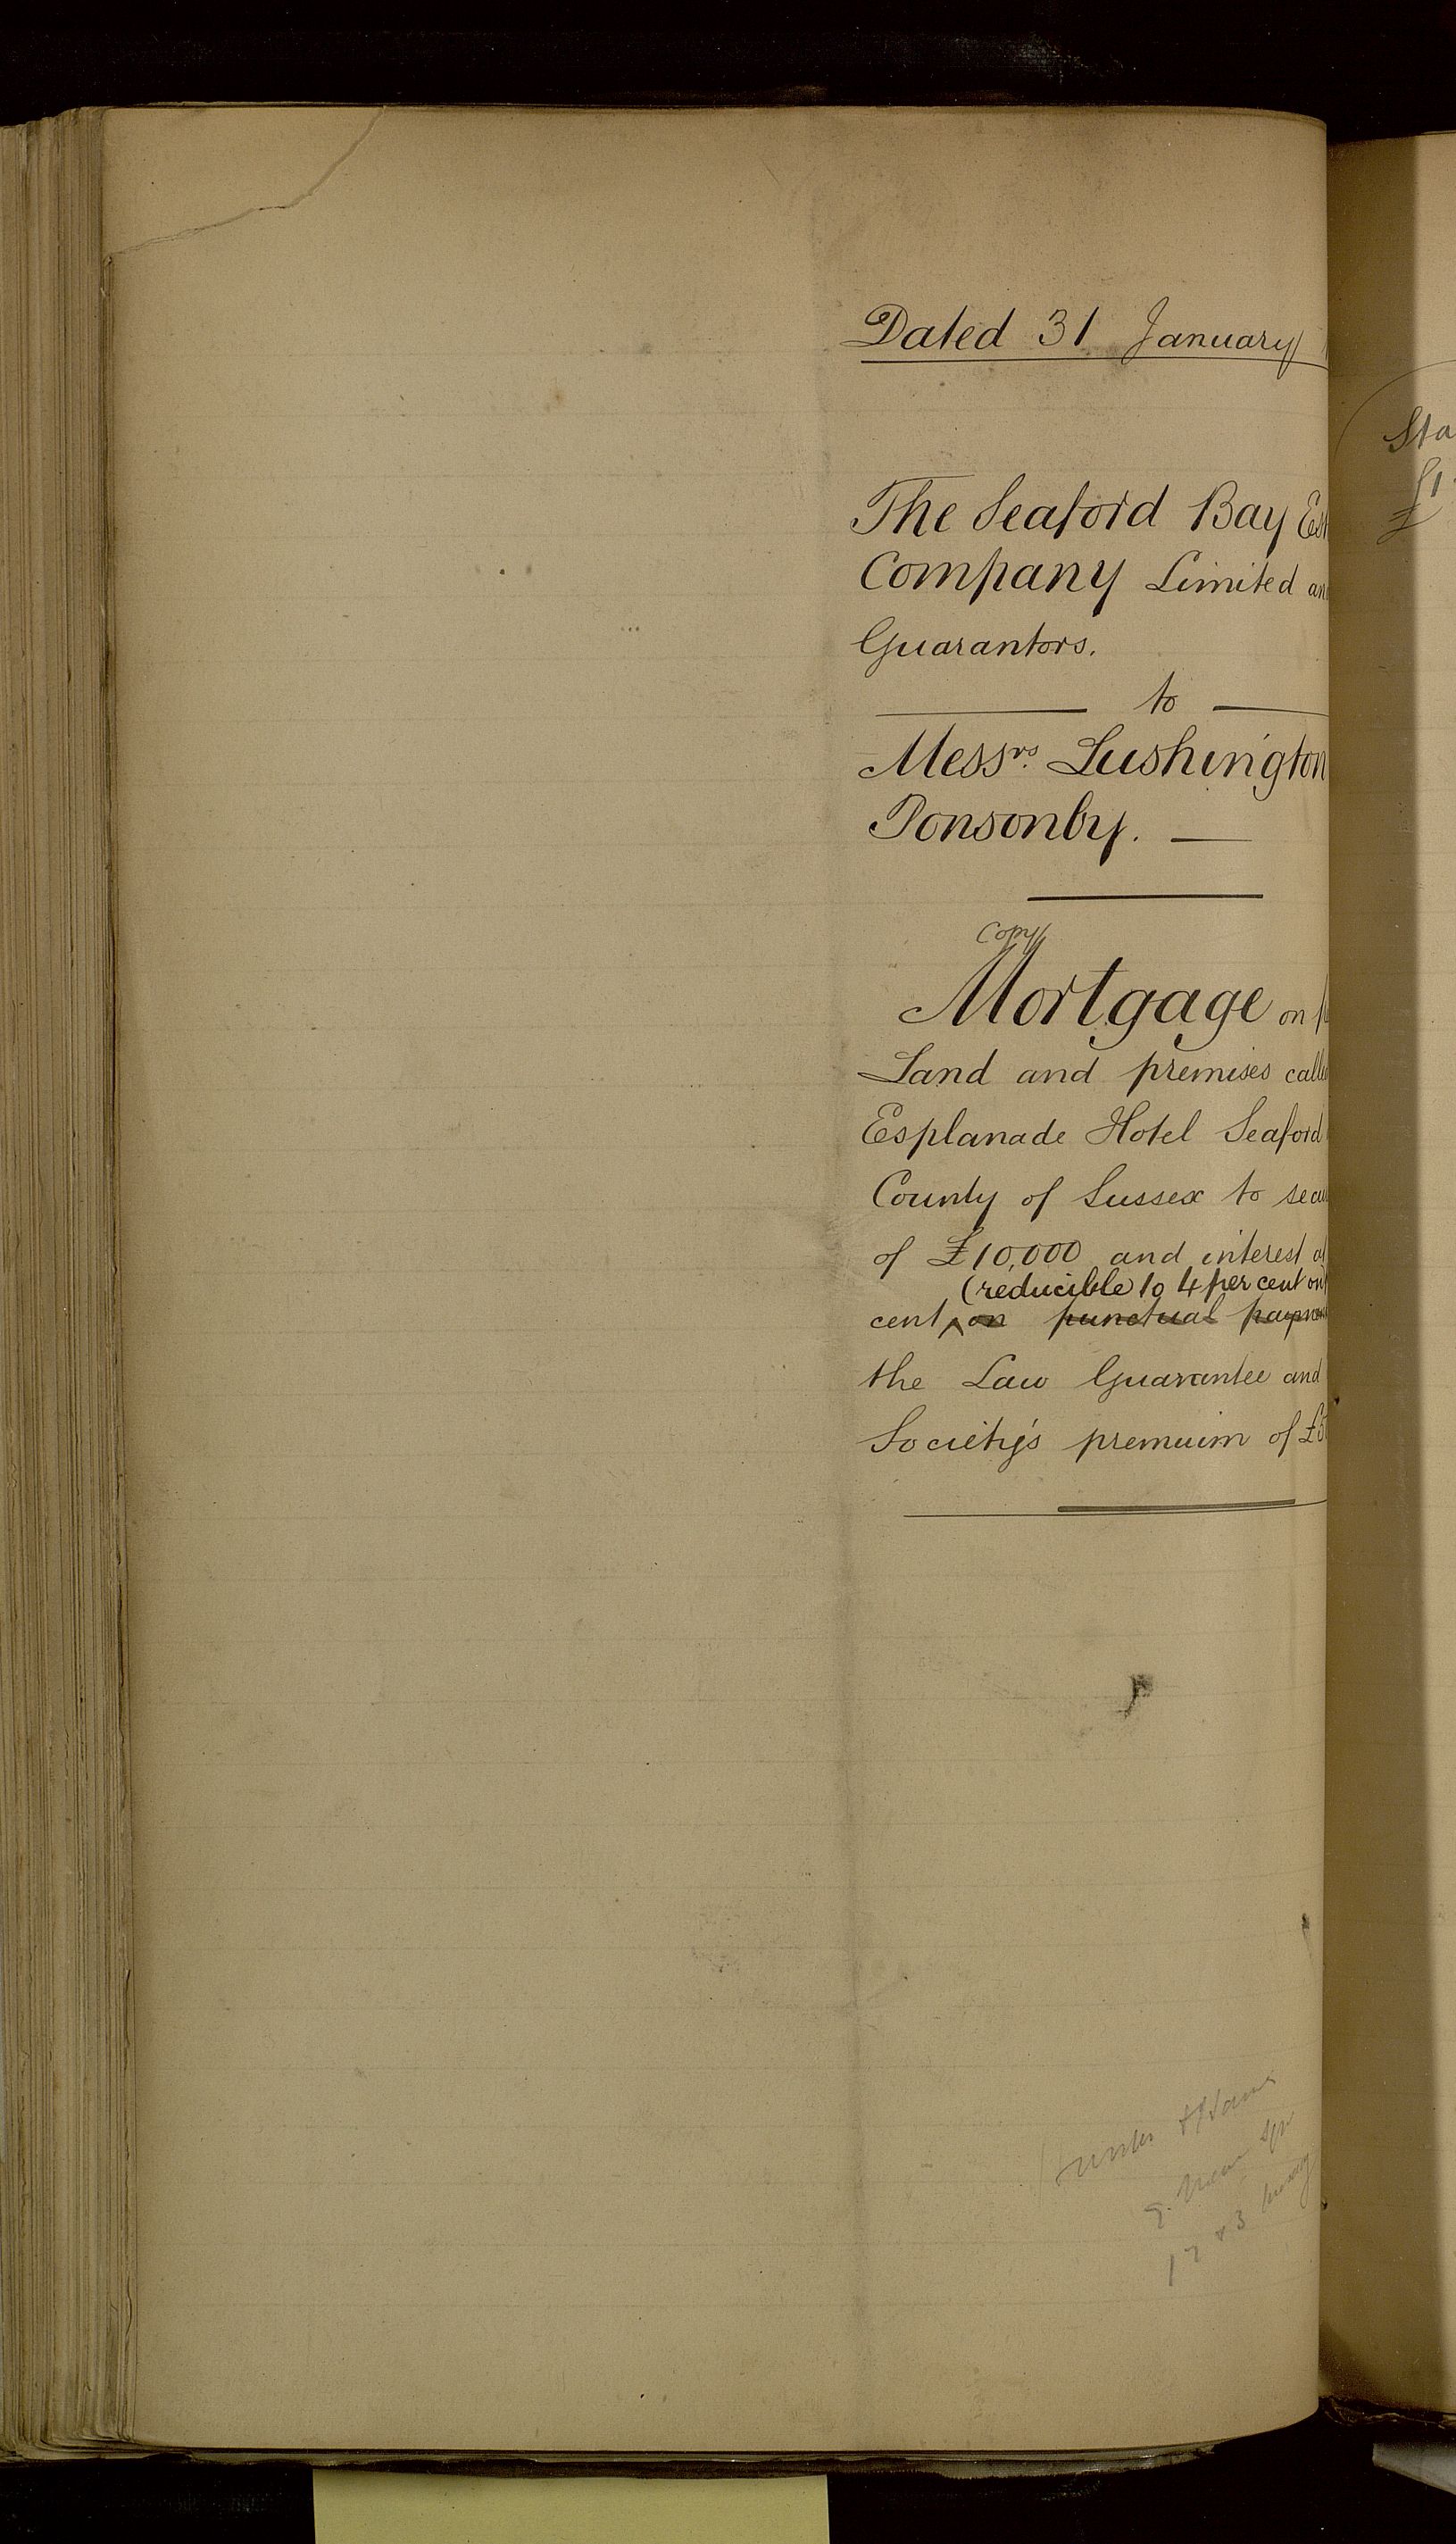 Dated 31 January
The Seaford Bay Est
Company Limited an
Guarantors.
to
Messrs. Lushington
Ponsonby.
Copy
Mortgage on
Land and premises calle
Esplanade Hotel Seaford
County of Sussex to secu
of £10,000 and interest at
(reducible to 4 per cent on
cent on punctual paymen
the Law Guarantee and
Society's premuim of £5
Sta
£1